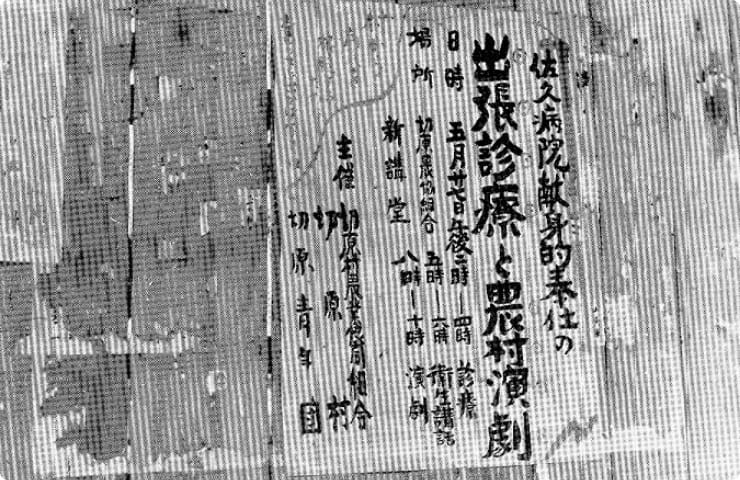 佐久病院献身的奉仕の
出張診療と農村演劇
日時 五月廿七日午後二時—四時 診療
五時—六時 衛生講話
八時—十時 演劇
場所 切原農協組合
新講堂
主催 切原村農業協同組合
切原村
切原青年団